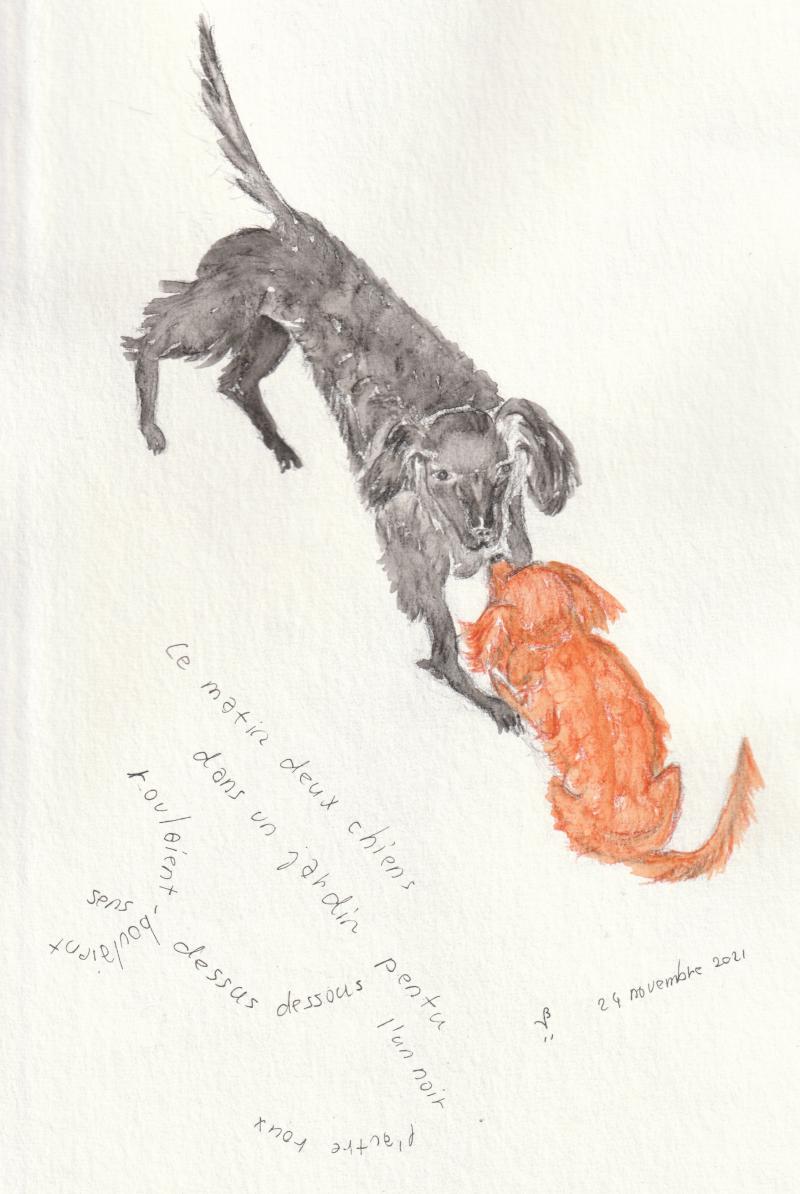 Ce matin deux chiens
dans un jardin pentu
roulaient-boulaient
sens dessus dessous
l'un noir
l'autre roux
24 novembre 2021